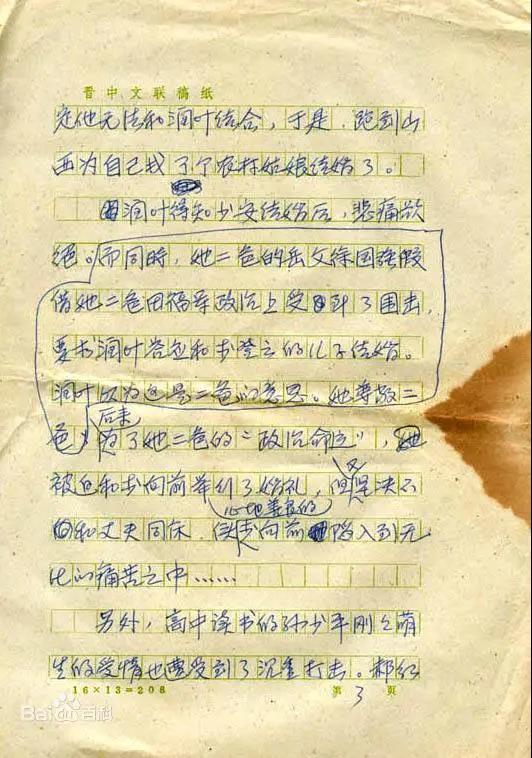 晋中文联稿纸
定他无法和润叶结合，于是，跑到山
西为自己找了个农村姑娘结婚了。
润叶得知少安结婚后，悲痛欲
绝。而同时，她二爸的岳父徐国强假
借她二爸田福军政治上受到了围击，
要求润叶答应和李登云的儿子结婚。
润叶以为这是二爸的意思。她尊敬二
爸，后来
为了她二爸的“政治命运”，
被迫和李向前举行了婚礼，但又决不
心地善良的
和丈夫同床，使李向前陷入到无
比的痛苦之中……
另外，高中读书的孙少平刚刚萌
生的爱情也遭受到了沉重打击。郝红
16×13=208
第3页
Bai百科